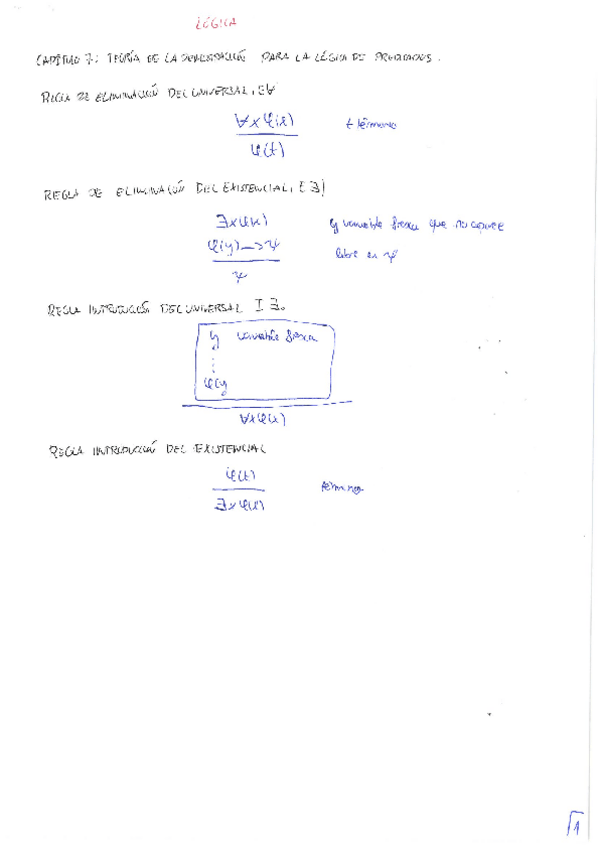 LÓGICA
CAPÍTULO 7: TEORÍA DE LA DEMOSTRACIÓN PARA LA LÓGICA DE PREDICADOS.
REGLA DE ELIMINACIÓN DEL UNIVERSAL, E∀
∀xφ(x) t término
φ(t)
REGLA DE ELIMINACIÓN DEL EXISTENCIAL, E∃)
∃xφ(x) y variable fresca que no aparece
φ(y)→ψ libre en ψ
ψ
REGLA INTRODUCCIÓN DEL UNIVERSAL I∃.
y variable fresca
⋮
φ(y
∀xφ(x)
REGLA INTRODUCCIÓN DEL EXISTENCIAL
φ(t) término
∃xφ(x)
1